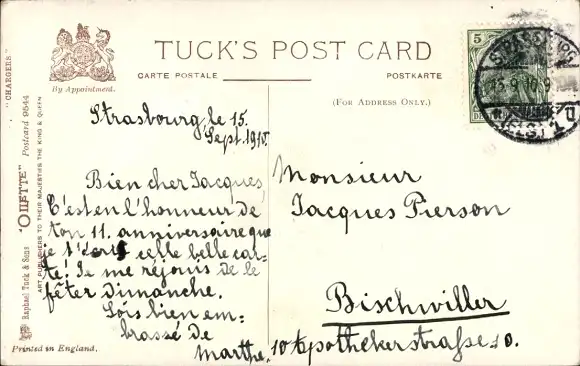 TUCK'S POST CARD
By Appointment.
CARTE POSTALE
POSTKARTE
(FOR ADDRESS ONLY.)
"CHARGERS"
Raphael Tuck & Sons "OILETTE" Postcard 9544
ART PUBLISHERS TO THEIR MAJESTIES THE KING & QUEEN
Printed in England.
5
STRASSBURG
Strasbourg le 15.
Sept. 1910.
Bien cher Jacques,
C'est en l'honneur de
ton 11. anniversaire que
je t'écris cette belle car-
te! Je me réjouis de le
fêter dimanche.
Sois bien em-
brassé de
Marthe.
Monsieur
Jacques Pierson
Bischwiller
10 Apothekerstraße 10.